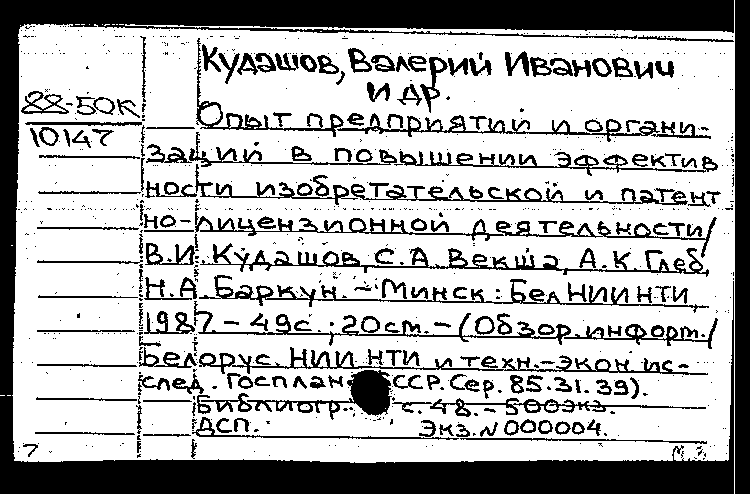 Кудашов, Валерий Иванович
и др.
88-50К
10147
Опыт предприятий и органи-
заций в повышении эффектив
ности изобретательской и патент
но-лицензионной деятельности/
В.И. Кудашов, С.А. Векша, А.К. Глеб,
Н.А. Баркун. - Минск: БелНИИНТИ,
1987. - 49с.; 20см. - (Обзор. информ./
Белорус. НИИ НТИ и техн.-экон. ис-
след. Госплана ССР. Сер. 85.31.39).
Библиогр.: с. 48. - 500экз.
ДСП. Экз. N 000004.
7 М. З.